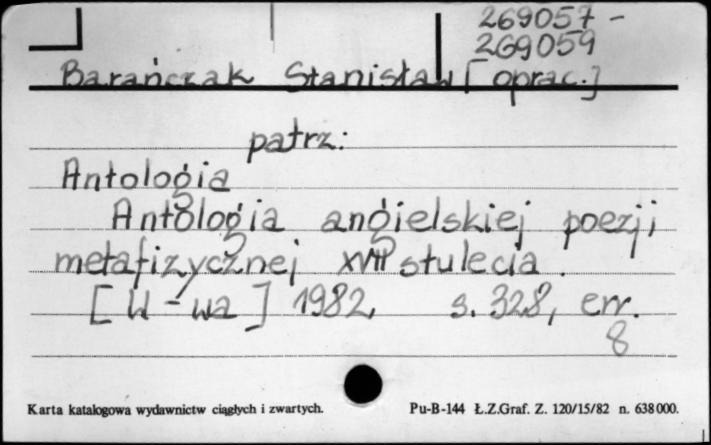 269057 -
269059
Barańczak Stanisław [oprac.]
patrz:
Antologia
Antologia angielskiej poezji
metafizycznej XVII stulecia.
[W-wa] 1982, s. 328, err.
8
Karta katalogowa wydawnictw ciągłych i zwartych. Pu-B-144 Ł.Z.Graf. Z. 120/15/82 n. 638 000.